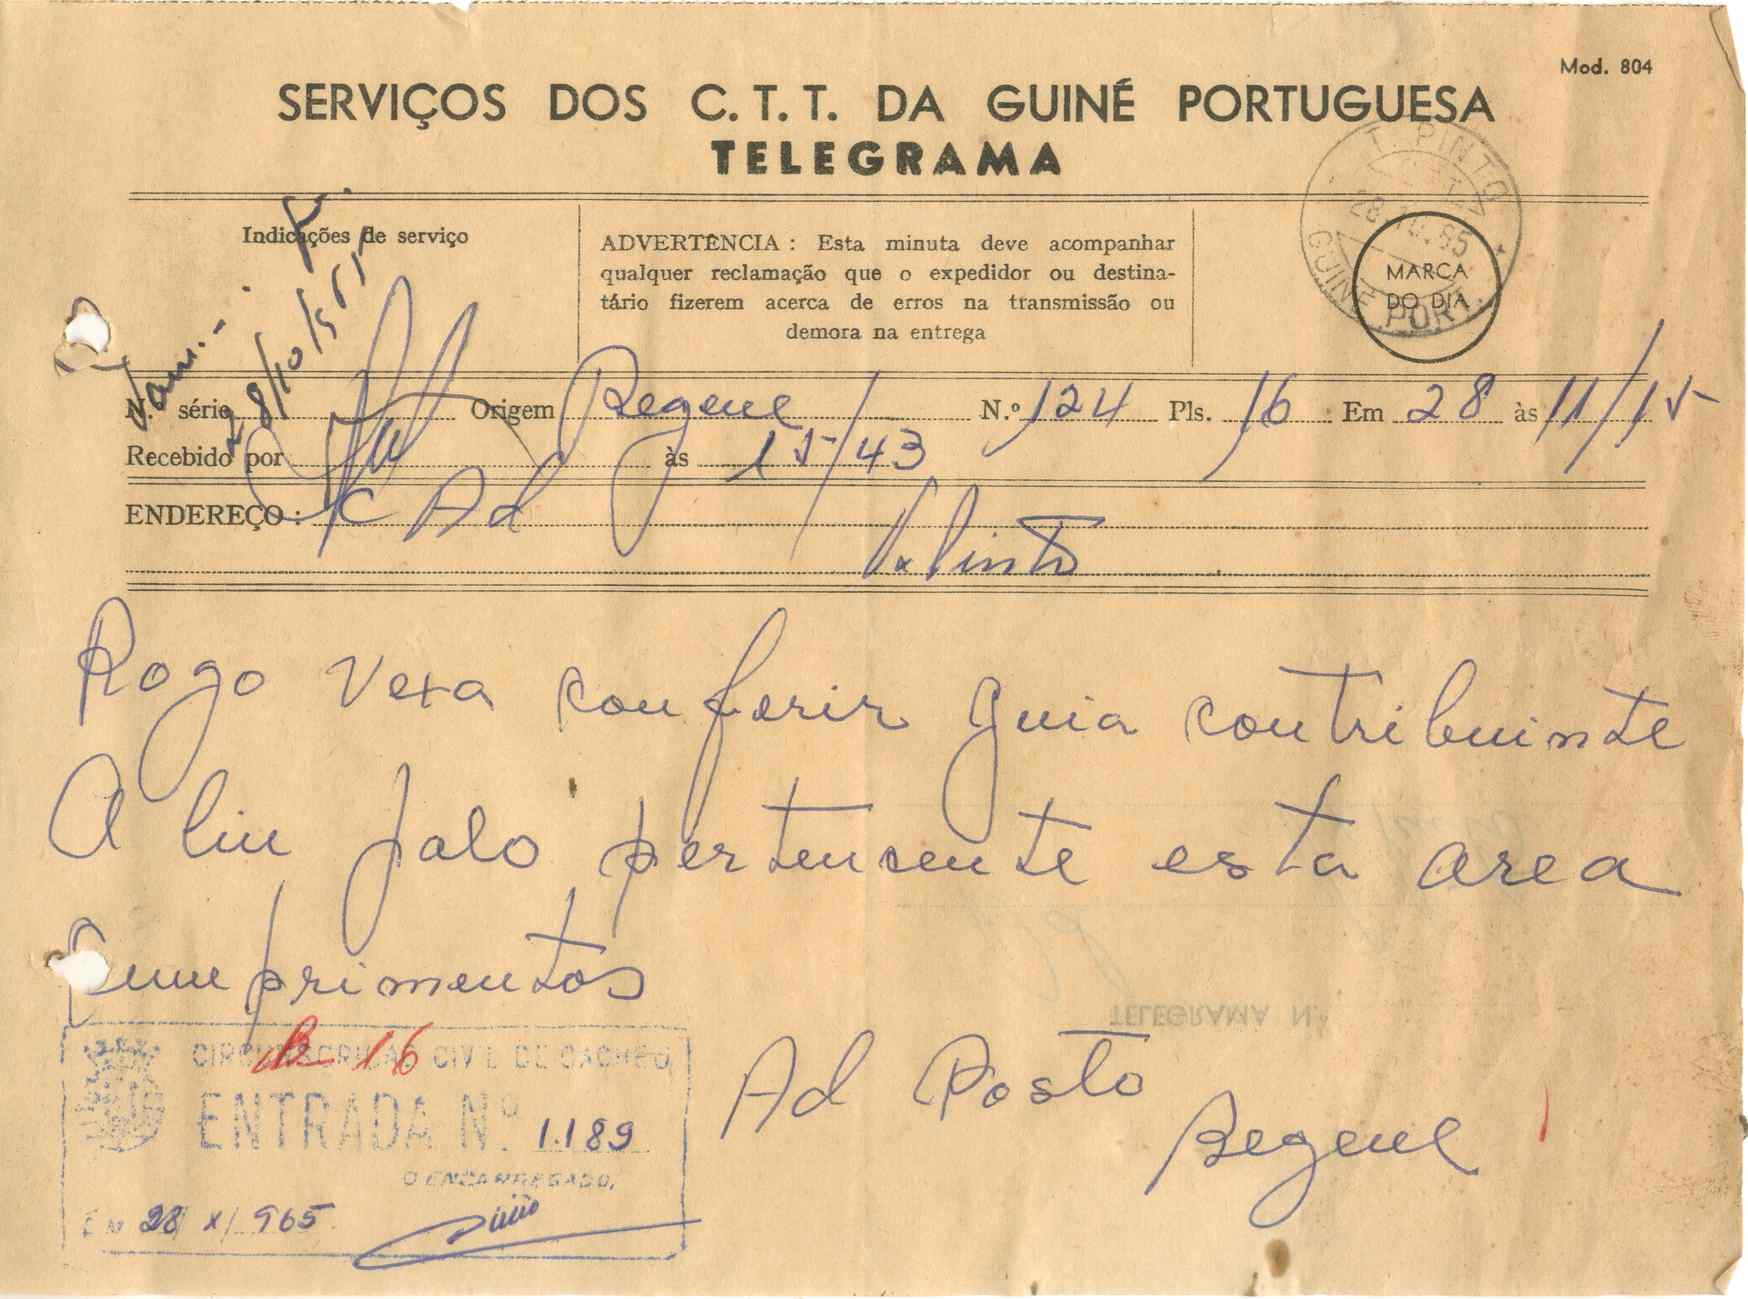 Mod. 804
SERVIÇOS DOS C.T.T. DA GUINÉ PORTUGUESA
TELEGRAMA
T. PINTO
28.10.65
GUINÉ PORT.
MARCA
DO DIA
Indicações de serviço
28/10/
ADVERTÊNCIA : Esta minuta deve acompanhar
qualquer reclamação que o expedidor ou destina-
tário fizerem acerca de erros na transmissão ou
demora na entrega
N.º série Origem Begene N.º 124 Pls. 16 Em 28 às 11/15
Recebido por às 15/43
ENDEREÇO : Ad
Pinto
Rogo vexa conferir guia contribuinte
Aliu Jalo pertencente esta area
Cumprimentos
Ad Posto
Begene
TELEGRAMA N.
CIRCUNSCRIÇÃO CIVIL DE CACHEU
16
ENTRADA N.º 1.189
O ENCARREGADO,
EM 28/X/965